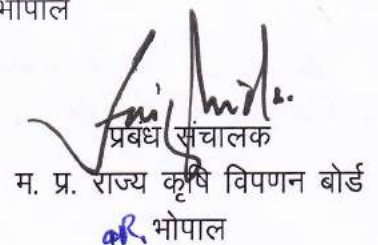 भोपाल
प्रबंध संचालक
म. प्र. राज्य कृषि विपणन बोर्ड
भोपाल